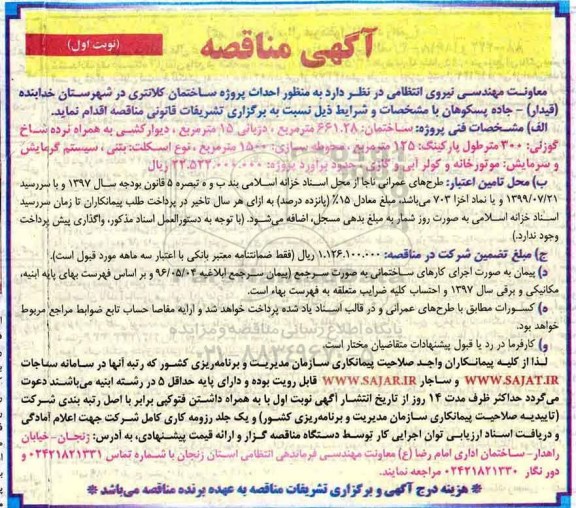 آگهی مناقصه
(نوبت اول)
معاونت مهندسی نیروی انتظامی در نظر دارد به منظور احداث پروژه ساختمان کلانتری در شهرستان خدابنده
(قیدار) - جاده پسکوهان با مشخصات و شرایط ذیل نسبت به برگزاری تشریفات قانونی مناقصه اقدام نماید.
الف) مشخصات فنی پروژه: ساختمان: ۶۶۱.۲۸ مترمربع ، دژبانی ۱۵ مترمربع ، دیوارکشی به همراه نرده شاخ
گوزنی: ۳۰۰ مترطول پارکینگ: ۱۲۵ مترمربع ، محوطه سازی: ۱۵۰۰ مترمربع ، نوع اسکلت: بتنی ، سیستم گرمایش
و سرمایش: موتورخانه و کولر آبی و گازی، حدود برآورد پروژه: ۲۲.۵۲۲.۰۰۰.۰۰۰ ریال
ب) محل تامین اعتبار: طرح‌های عمرانی ناجا از محل اسناد خزانه اسلامی بند ب و ه تبصره ۵ قانون بودجه سال ۱۳۹۷ و با سررسید
۱۳۹۹/۰۷/۲۱ و با نماد اخزا ۷۰۳ می‌باشد، مبلغ معادل ۱۵٪ (پانزده درصد) به ازای هر سال تاخیر در پرداخت طلب پیمانکاران تا زمان سررسید
اسناد خزانه اسلامی به صورت روز شمار به مبلغ بدهی مسجل، اضافه می‌شود. (با توجه به دستورالعمل اسناد مذکور، واگذاری پیش پرداخت
وجود ندارد.)
ج) مبلغ تضمین شرکت در مناقصه: ۱.۱۲۶.۱۰۰.۰۰۰ ریال (فقط ضمانتنامه معتبر بانکی با اعتبار سه ماهه مورد قبول است).
د) پیمان به صورت اجرای کارهای ساختمانی به صورت سرجمع (پیمان سرجمع ابلاغیه ۹۶/۰۵/۰۴ و بر اساس فهرست بهای پایه ابنیه،
مکانیکی و برقی سال ۱۳۹۷ و احتساب کلیه ضرایب متعلقه به فهرست بهاء است.
ه) کسورات مطابق با طرح‌های عمرانی و در قالب اسناد یاد شده پرداخت خواهد شد و ارایه مفاصا حساب تابع ضوابط مراجع مربوط
خواهد بود.
و) کارفرما در رد یا قبول پیشنهادات متقاضیان مختار است.
لذا از کلیه پیمانکاران واجد صلاحیت پیمانکاری سازمان مدیریت و برنامه‌ریزی کشور که رتبه آنها در سامانه ساجات
WWW.SAJAT.IR و ساجار WWW.SAJAR.IR قابل رویت بوده و دارای پایه حداقل ۵ در رشته ابنیه می‌باشند دعوت
می‌گردد حداکثر ظرف مدت ۱۴ روز از تاریخ انتشار آگهی نوبت اول با به همراه داشتن فتوکپی برابر با اصل رتبه بندی شرکت
(تاییدیه صلاحیت پیمانکاری سازمان مدیریت و برنامه‌ریزی کشور) و یک جلد رزومه کاری کامل شرکت جهت اعلام آمادگی
و دریافت اسناد ارزیابی توان اجرایی کار توسط دستگاه مناقصه گزار و ارائه قیمت پیشنهادی، به آدرس: زنجان- خیابان
راهدار- ساختمان اداری امام رضا (ع) معاونت مهندسی فرماندهی انتظامی استان زنجان با شماره تماس ۰۲۴۲۱۸۲۱۳۳۱ و
دور نگار ۰۲۴۲۱۸۲۱۳۳۰ مراجعه نمایند.
* هزینه درج آگهی و برگزاری تشریفات مناقصه به عهده برنده مناقصه می‌باشد *
پایگاه اطلاع رسانی مناقصه و مزایده